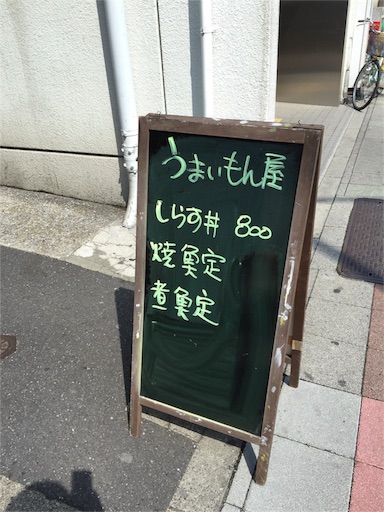 うまいもん屋
しらす丼 800
焼魚定
煮魚定